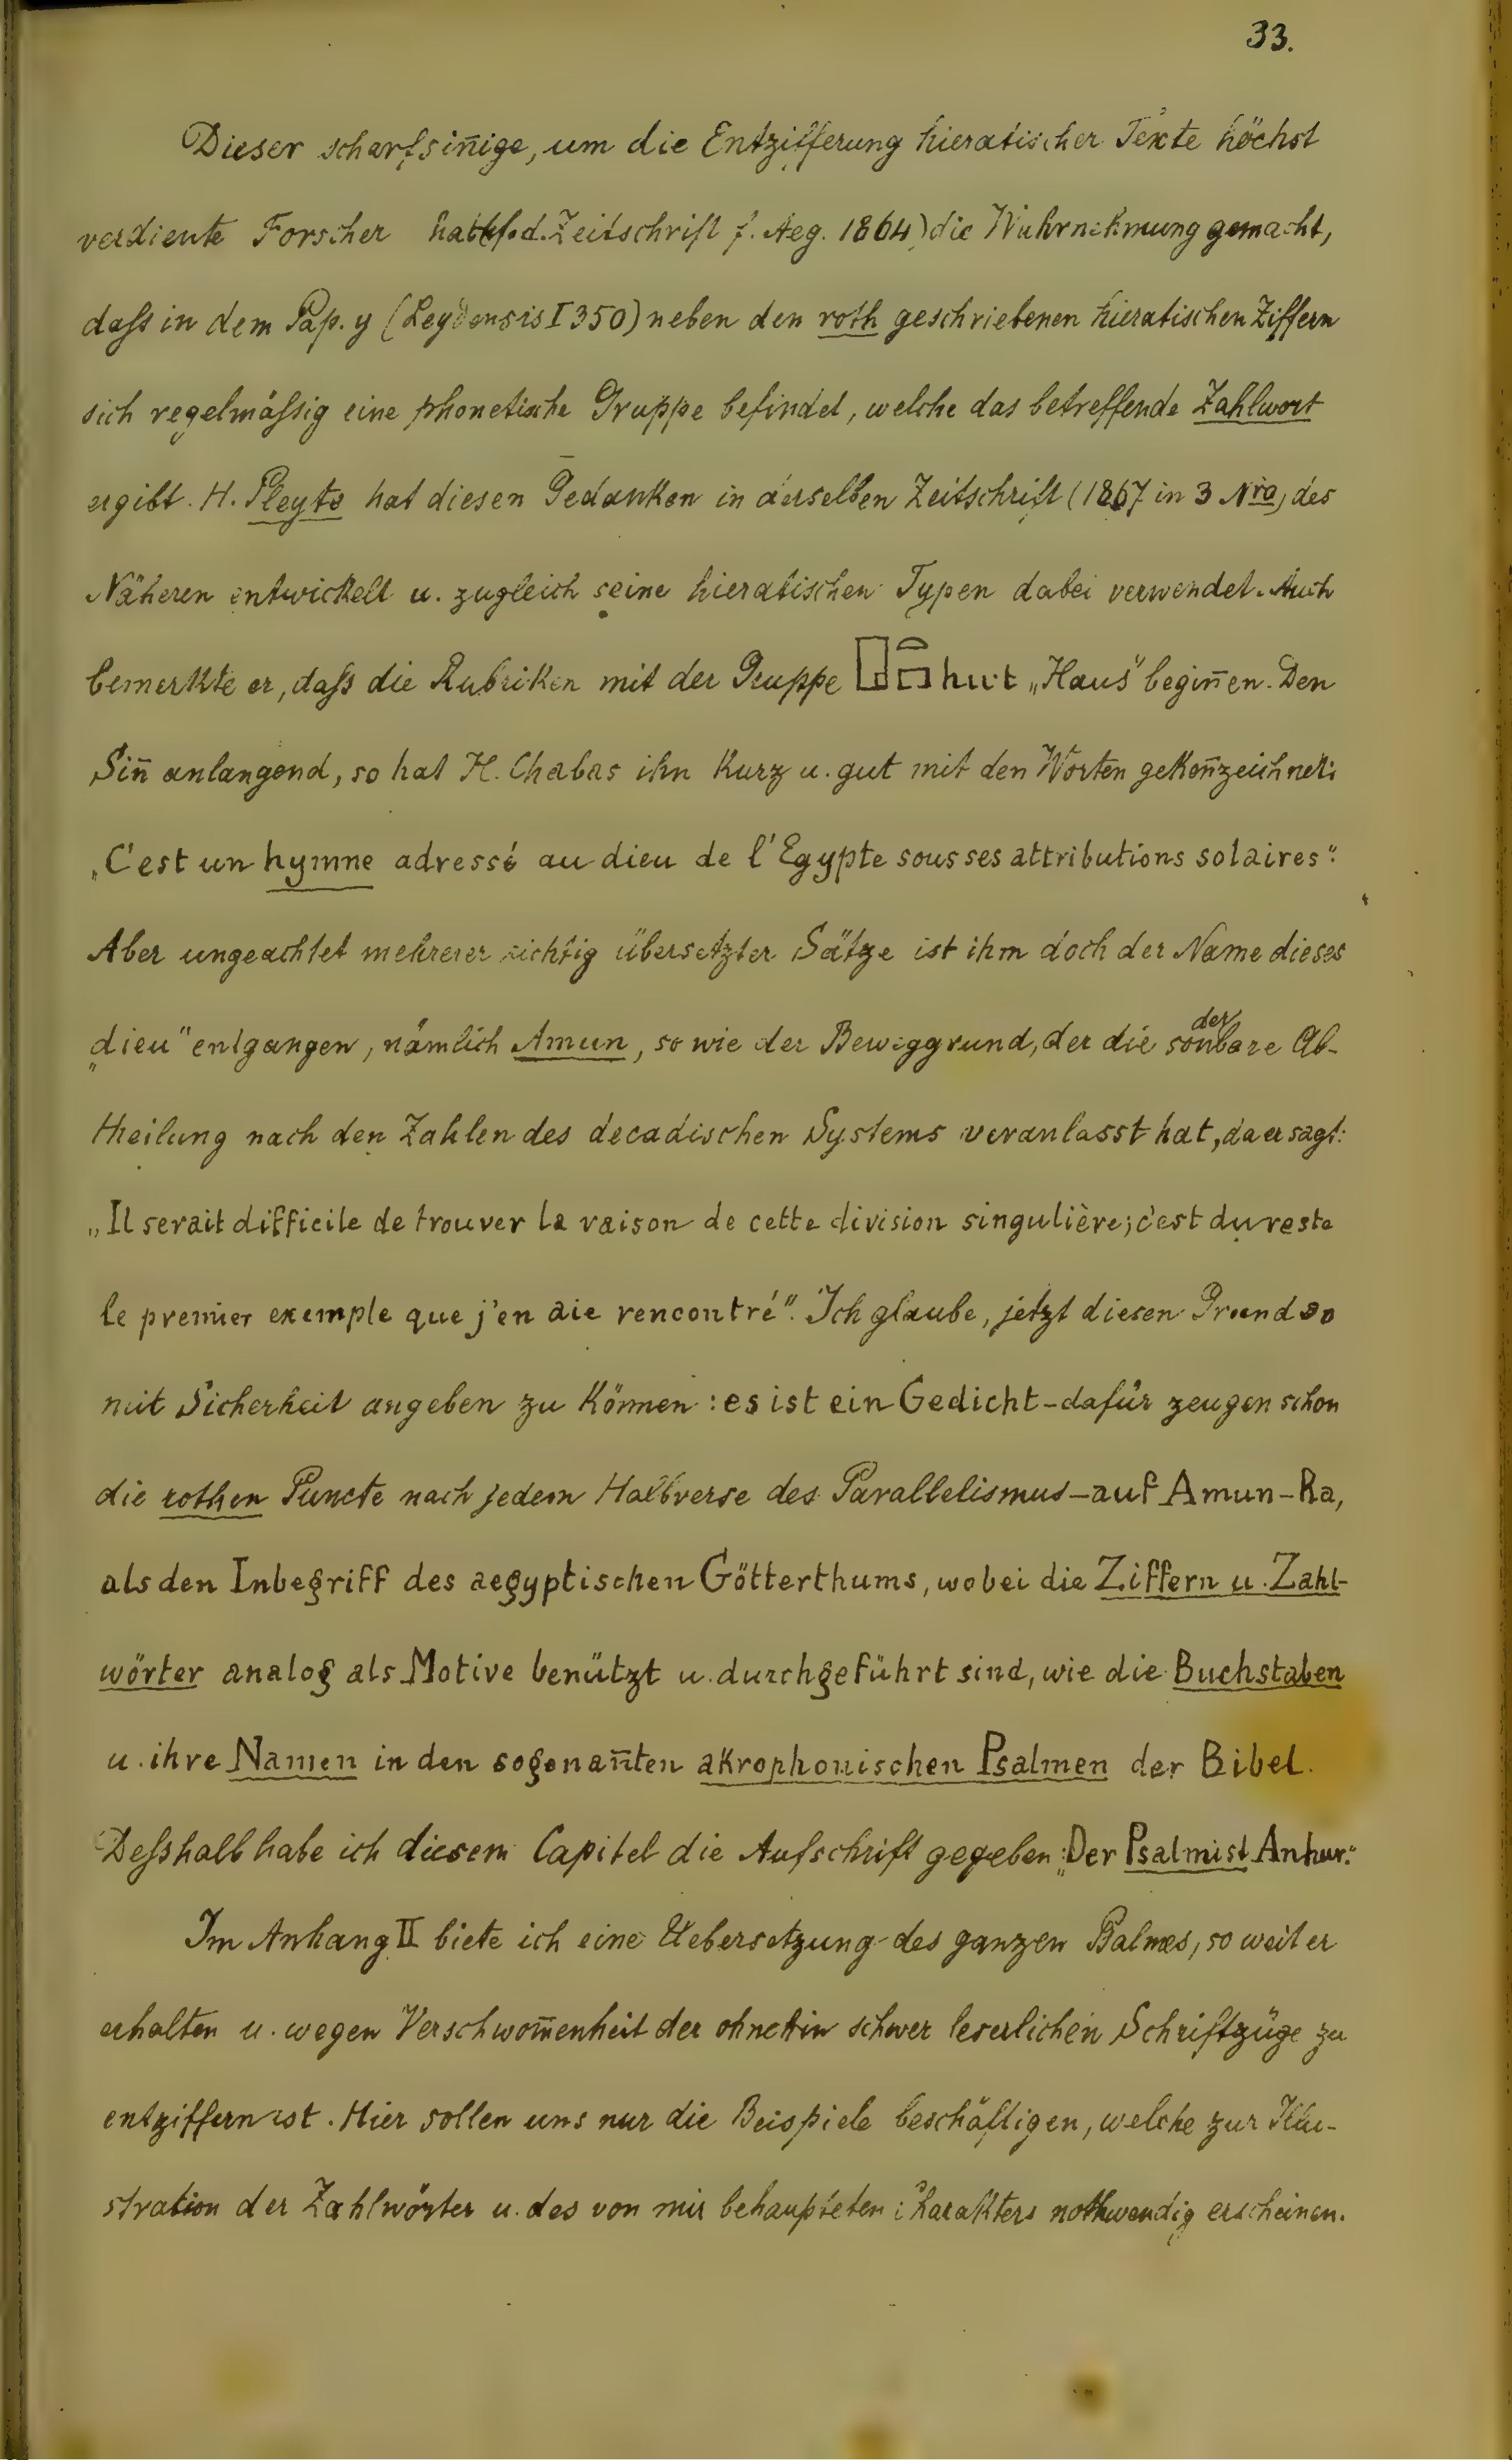 33.
Dieser scharfsin̄ige, um die Entzifferung hieratischer Texte höchst
verdiente Forscher hat (s. d. Zeitschrift f. Aeg. 1864) die Wahrnehmung gemacht,
daſs in dem Pap. y (Leydensis I 350) neben den roth geschriebenen hieratischen Ziffern
sich regelmäſsig eine phonetische Gruppe befindet, welche das betreffende Zahlwort
ergibt. H. Pleyte hat diesen Gedanken in derselben Zeitschrift (1867 in 3 Nro) des
Näheren entwickelt u. zugleich seine hieratischen Typen dabei verwendet. Auch
bemerkte er, daſs die Rubriken mit der Gruppe 𓉗𓉐 hut „Haus" begin̄en. Den
Sin̄ anlangend, so hat H. Chabas ihn kurz u. gut mit den Worten geken̄zeichnet:
„C'est un hymne adressé au dieu de l'Egypte sous ses attributions solaires".
Aber ungeachtet mehrerer richtig übersetzter Sätze ist ihm doch der Name dieses
„dieu" entgangen, nämlich Amun, so wie der Beweggrund, der die sonderbare Ab-
theilung nach den Zahlen des decadischen Systems veranlasst hat, da er sagt:
„Il serait difficile de trouver la raison de cette division singulière; c'est du reste
le premier exemple que j'en aie rencontré". Ich glaube, jetzt diesen Grund so
mit Sicherheit angeben zu können: es ist ein Gedicht – dafür zeugen schon
die rothen Puncte nach jedem Halbverse des Parallelismus – auf Amun-Ra,
als den Inbegriff des aegyptischen Götterthums, wobei die Ziffern u. Zahl-
wörter analog als Motive benützt u. durchgeführt sind, wie die Buchstaben
u. ihre Namen in den sogenan̄ten akrophonischen Psalmen der Bibel.
Deſshalb habe ich diesem Capitel die Aufschrift gegeben: „Der Psalmist Anhur."
Im Anhang II biete ich eine Uebersetzung des ganzen Psalmes, so weit er
erhalten u. wegen Verschwom̄enheit der ohnehin schwer leserlichen Schriftzüge zu
entziffern ist. Hier sollen uns nur die Beispiele beschäftigen, welche zur Illu-
stration der Zahlwörter u. des von mir behaupteten Charakters nothwendig erscheinen.